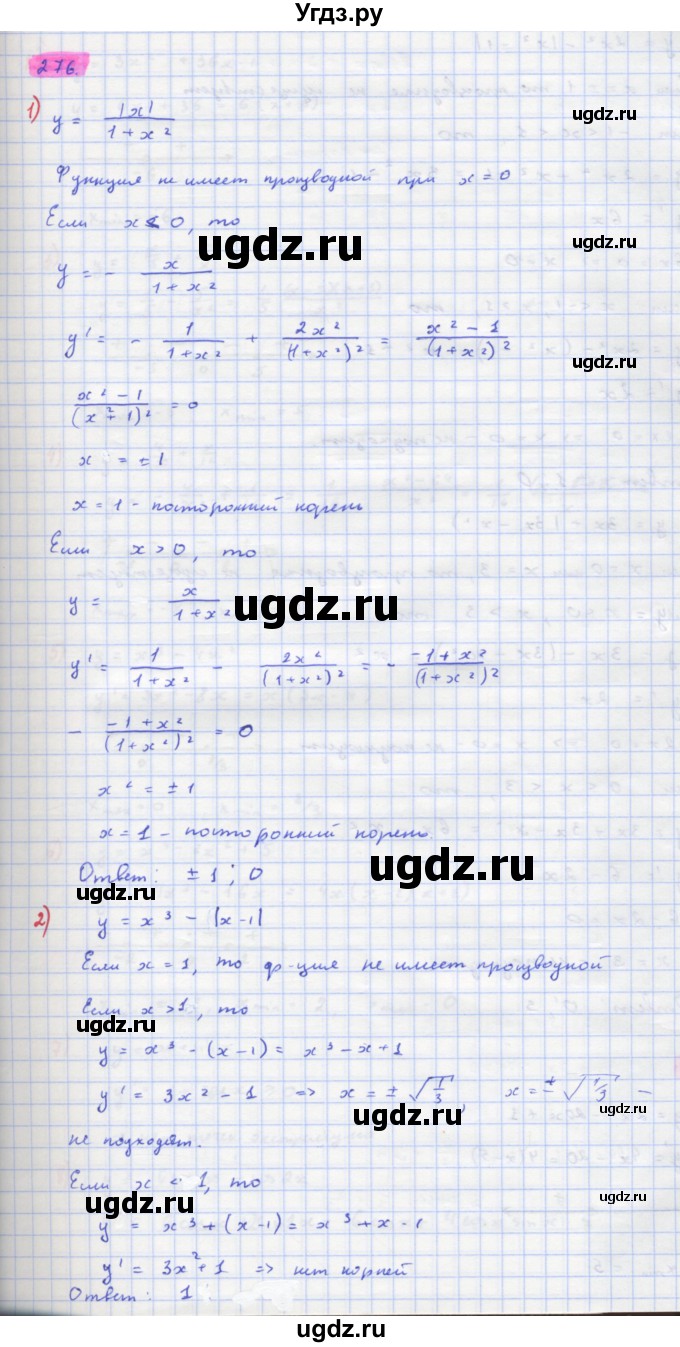 Угдз.ру
276.
1) y = |x| / (1 + x²)
ugdz.ru
Функция не имеет производной при x = 0
Если x < 0, то
ugdz.ru
y = - x / (1 + x²)
ugdz.ru
y' = - 1 / (1 + x²) + 2x² / (1 + x²)² = (x² - 1) / (1 + x²)²
ugdz.ru
(x² - 1) / (x² + 1)² = 0
x = ± 1
x = 1 - посторонний корень
Если x > 0, то
y = x / (1 + x²)
ugdz.ru
ugdz.ru
y' = 1 / (1 + x²) - 2x² / (1 + x²)² = - (-1 + x²) / (1 + x²)²
- (-1 + x²) / (1 + x²)² = 0
x² = ± 1
x = 1 - посторонний корень.
Ответ: ± 1 ; 0
ugdz.ru
ugdz.ru
2) y = x³ - |x - 1|
Если x = 1, то ф-ция не имеет производной
Если x > 1, то
ugdz.ru
y = x³ - (x - 1) = x³ - x + 1
y' = 3x² - 1 => x = ± √(1/3), x = ± √(1/3) -
не подходят.
ugdz.ru
Если x < 1, то
ugdz.ru
ugdz.ru
y = x³ + (x - 1) = x³ + x - 1
y' = 3x² + 1 => нет корней
ugdz.ru
Ответ: 1.
ugdz.ru